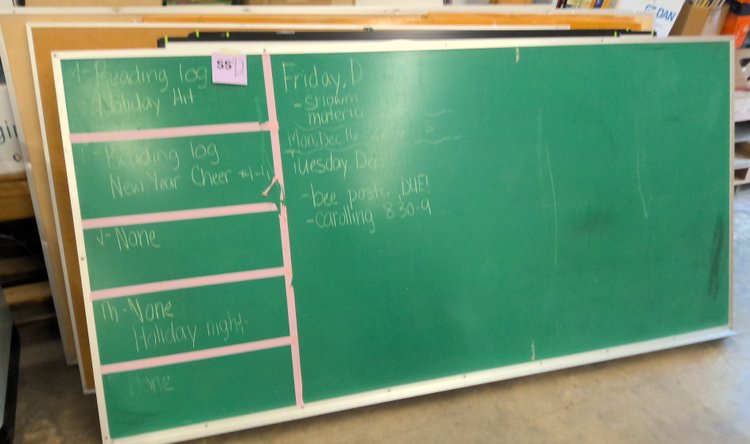 Reading log
Holiday Hit
SS
Reading log
New Year Cheer #1-11
None
Th-None
Holiday night-
None
Friday, D
materic
Mon, Dec 16
Tuesday, Dec
-bee poste DUE!
-carolling 8:30-9